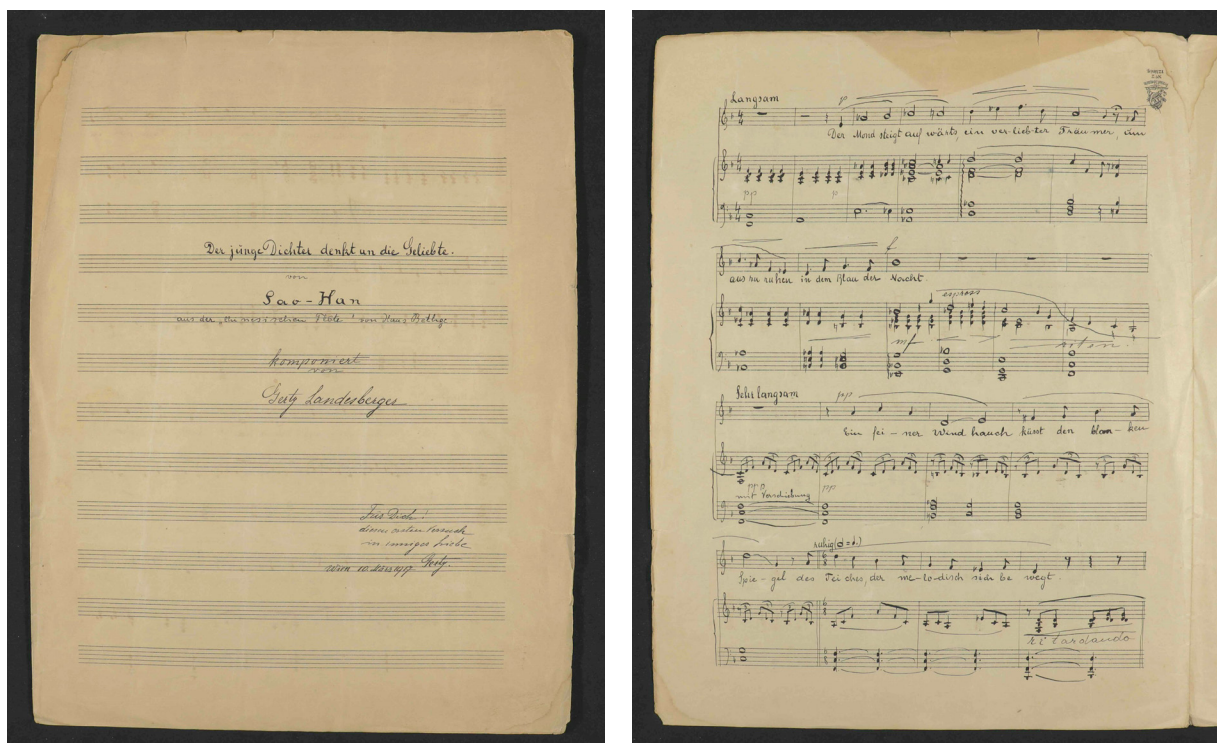 Der junge Dichter denkt an die Geliebte.
von
Sao-Han
aus der „Chinesischen Flöte" von Hans Bethge.
komponiert
von
Gerty Landesberger
Für Dich!
diesen ersten Versuch
in inniger Liebe
Gerty.
Wien 10. März 1917.
Langsam
p
Der Mond steigt auf wärts, ein ver-lieb-ter Träu-mer, um
pp p
f
aus zu ruhen in dem Blau der Nacht.
espress
mf
riten.
Sehr langsam ppp
Ein fei-ner Wind hauch küsst den blan-ken
ppp pp
mit Verschiebung
ruhig
Spie-gel des Tei ches, der me-lo-disch sich be wegt.
ritardando